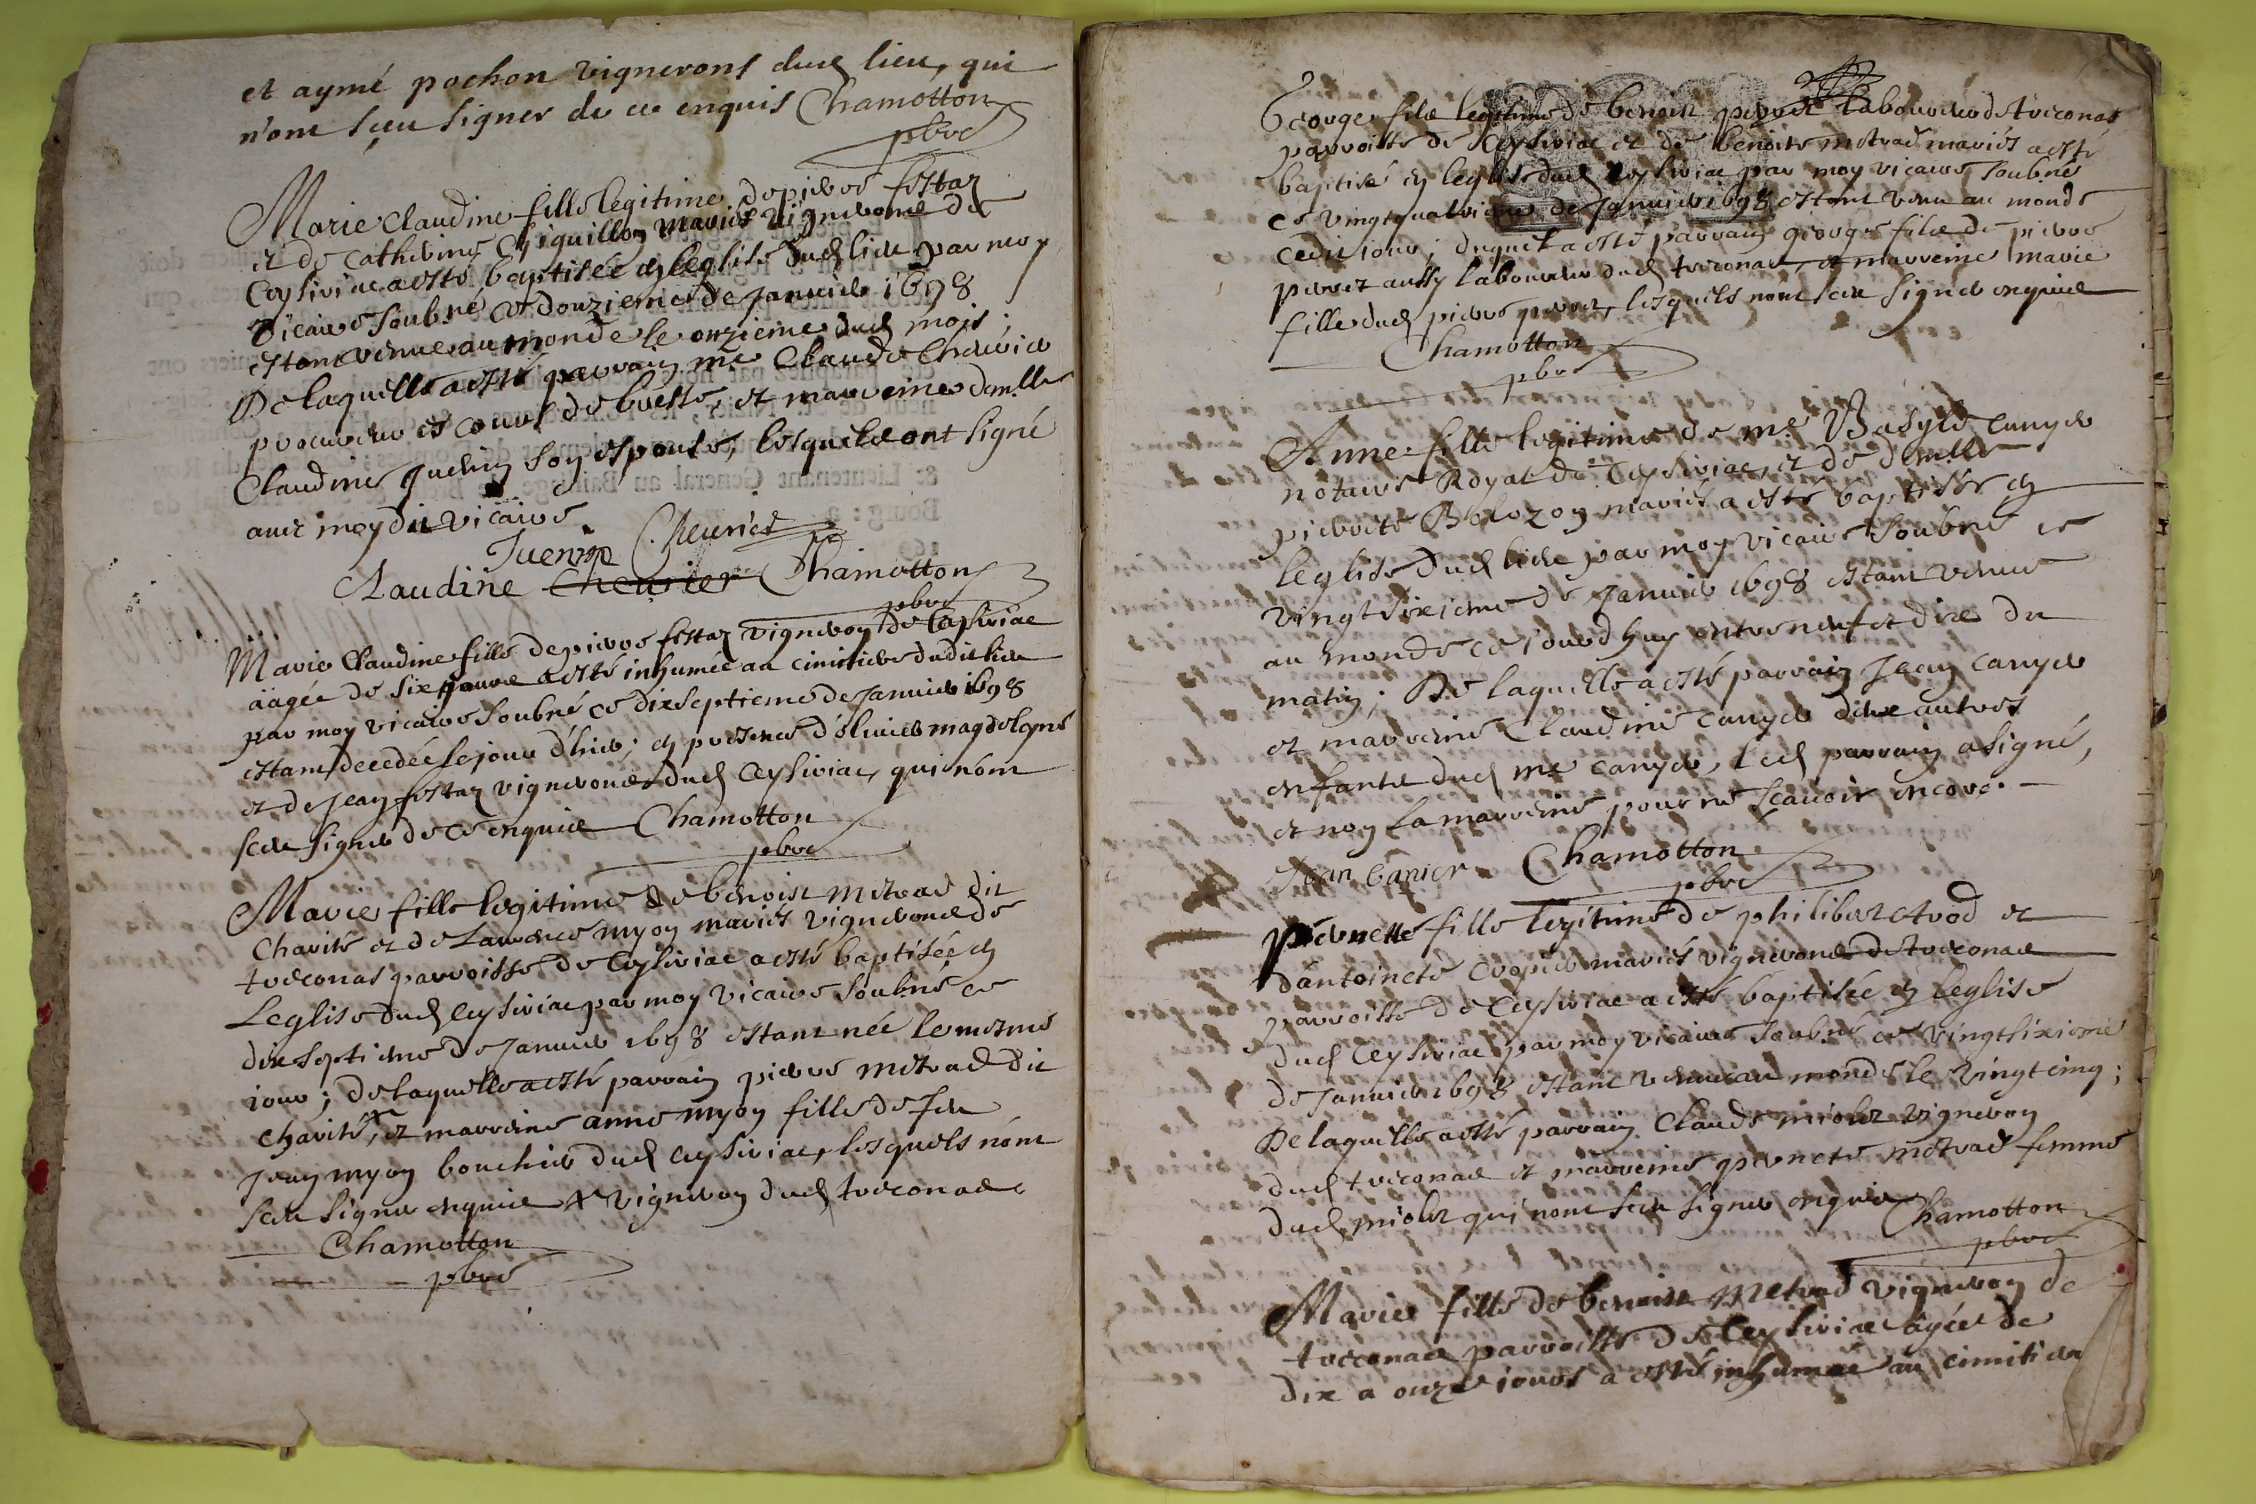 et aymé pochon vignerons dud lieu, qui
n'ont sçeu signer de ce enquis Chamotton
pbre
Marie Claudine fille legitime de pierre festaz
et de Catherine Chiquilloy mariés vignerons de
Ceysiriac a esté baptisée en leglise dud lieu par moy
vicaire soubné ce douzieme de Janvier 1698
estant venue au monde le onzieme dud mois ;
De laquelle a esté parrain me Claude Chevrier
procureur es cours de bresse, et marreine demlle
Claudine Juenin son espouse, lesquels ont signé
avec moydit vicaire.
Juenin Cheurier
Claudine Cheurier Chamotton
pbre
Marie Claudine fille de pierre festaz vigneron de Ceysiriac
aagée de six jours a esté inhumée au cimitiere dudit lieu
par moy vicaire soubné ce dixseptieme de Janvier 1698
estant decedée le jour d'hier ; en presence d'olivier magdelene
et de Jean festaz vignerons dud Ceysiriac, qui n'ont
sceu signer de ce enquis Chamotton
pbre
Marie fille legitime de benoist metras dit
Charité et de Laurence myon mariés vignerons de
treconas parroisse de Ceysiriac a esté baptisée en
Leglise dud Ceysiriac par moy vicaire soubné ce
dixseptieme de Janvier 1698 estant née le mesme
jour ; de laquelle a esté parrain pierre metras dit
charité, + et marreine anne myon fille de feu
Jean myon boucher dud Ceysiriac, lesquels n'ont
sceu signer enquis + vigneron dud treconas
Chamotton
pbre
George fils legitime de benoist perret laboureur de treconas
parroisse de Ceysiriac et de benoite metras mariés a esté
baptisé en leglise dud Ceysiriac par moy vicaire soubné
ce vingtquatrieme de Janvier 1698 estant venu au monde
cedit jour ; duquel a esté parrain george fils de pierre
perret aussy laboureur dud treconas, et marreine marie
fille dud pierre perret, lesquels n'ont sceu signer enquis
Chamotton
pbre
Anne fille legitime de me Basyle canyer
notaire Royal de Ceysiriac, et de demlle
pierrette Bolozon mariés a esté baptisée en
leglise dud lieu par moy vicaire soubné ce
vingtsixieme de Janvier 1698 estant venue
au monde ce jourd'huy entre neuf et dix du
matin ; De laquelle a esté parrain Jean canyer
et marreine Claudine canyer deux autres
enfants dud me canyer, led parrain a signé,
et non la marreine pour ne scavoir encore.
Jean Canier Chamotton
pbre
pernette fille legitime de philibert tvod et
dantoinette cropier mariés vignerons de treconas
parroisse de Ceysiriac a esté baptisée en leglise
dud Ceysiriac par moy vicaire soubné ce vingtsixieme
de Janvier 1698 estant venue au monde le vingt cinq ;
De laquelle a esté parrain Claude miolet vigneron
dud treconas et marreine pernette metras femme
dud miolet qui n'ont sceu signer enquis Chamotton
pbre
Marie fille de benoist Metras vigneron de
treconas parroisse de Ceysiriac agée de
dix a onze jours a esté inhumée au cimitiere